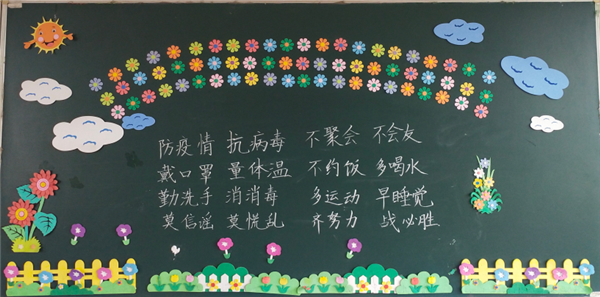 防疫情 抗病毒 不聚会 不会友
戴口罩 量体温 不约饭 多喝水
勤洗手 消消毒 多运动 早睡觉
莫信谣 莫慌乱 齐努力 战必胜